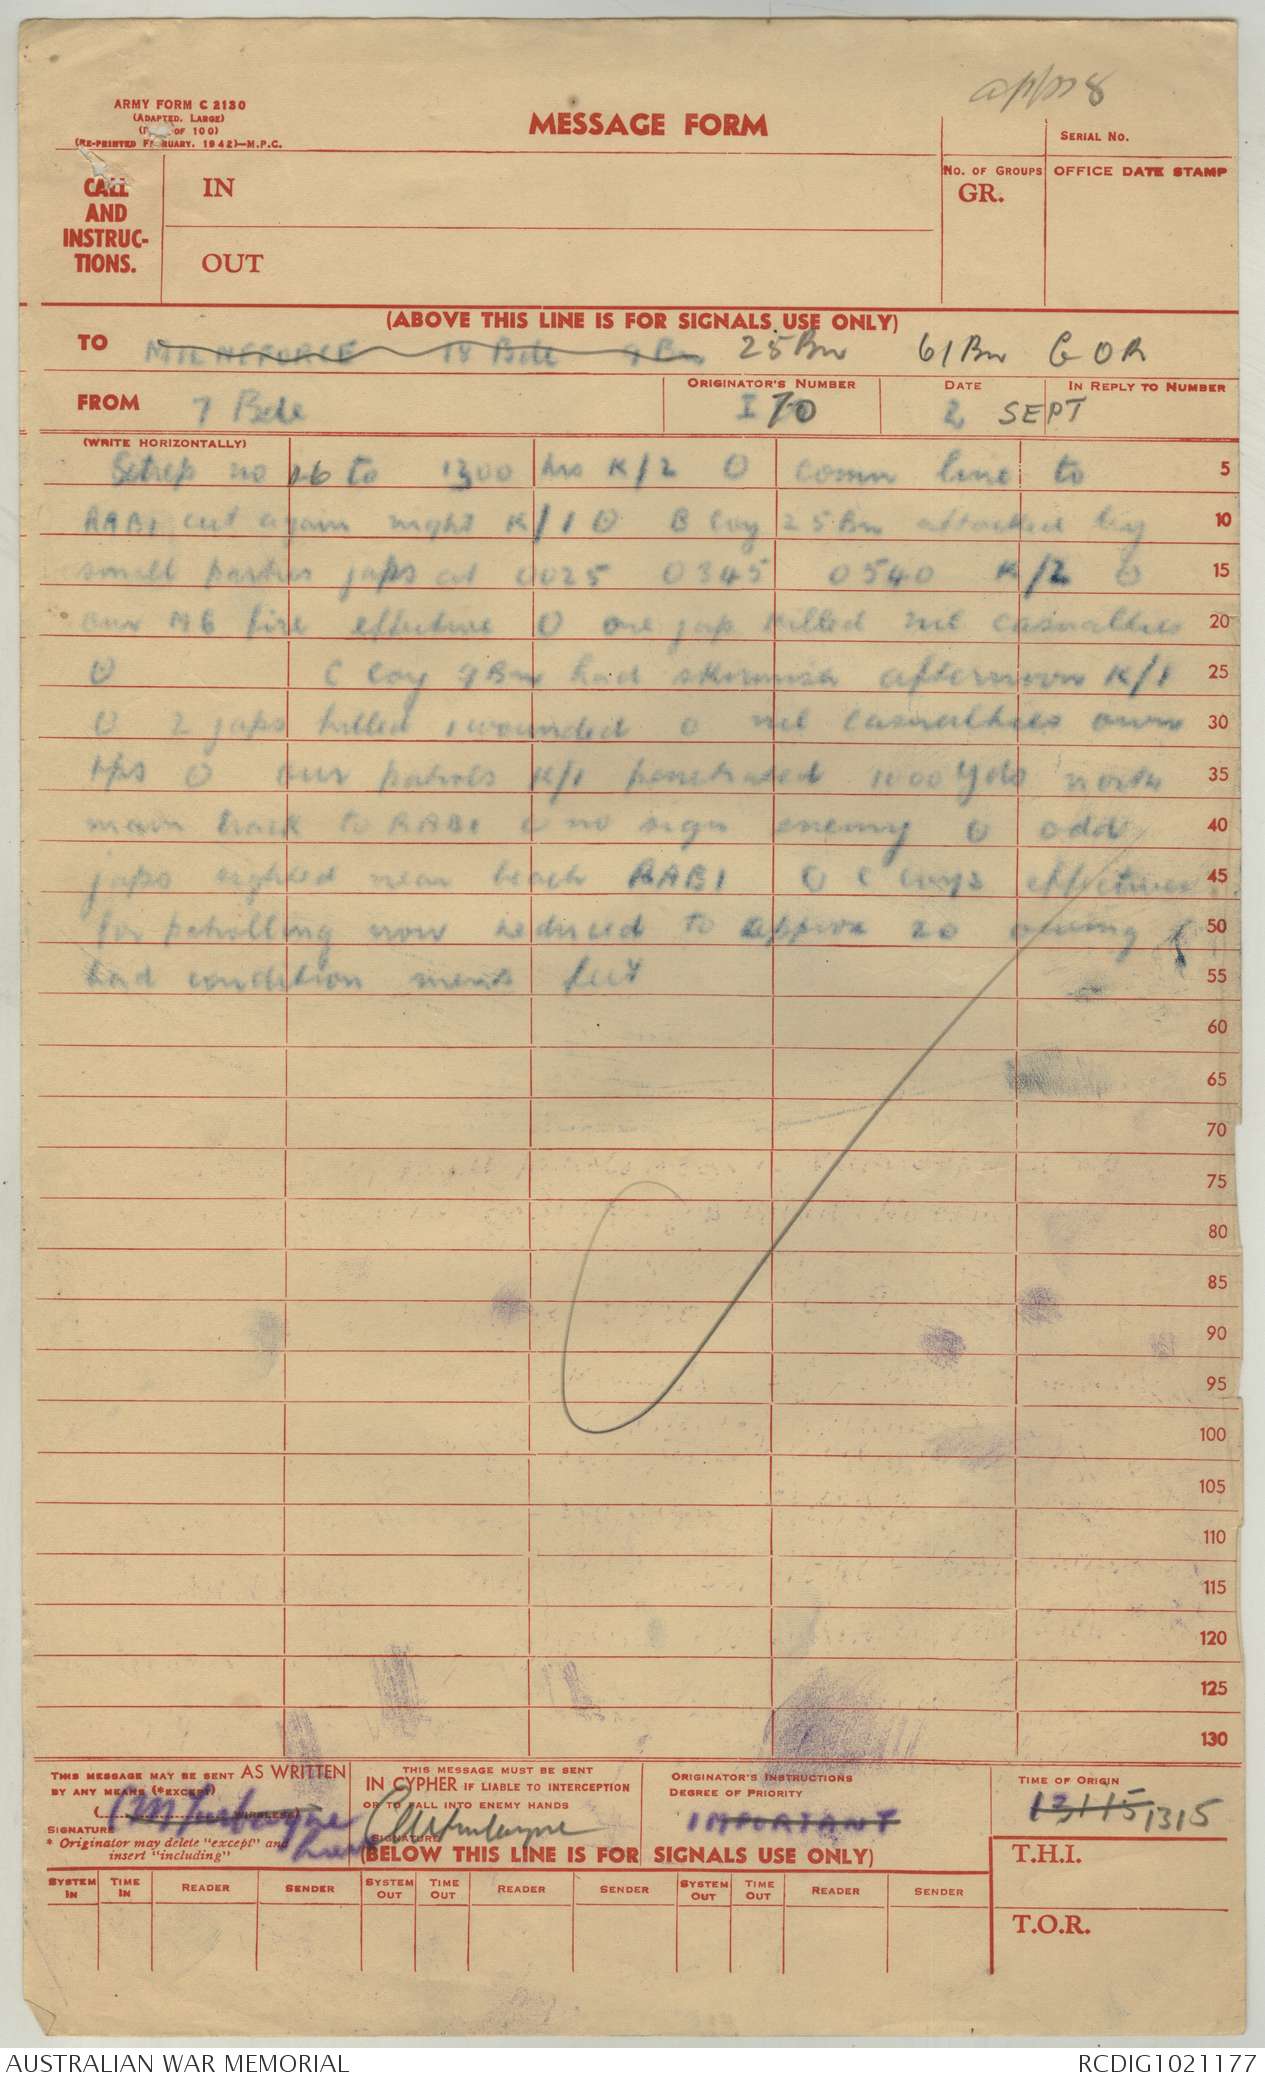 ARMY FORM C 2130
(ADAPTED. LARGE)
OF 100)
(RE-PRINTED FEBRUARY, 1942)—M.P.C.
MESSAGE FORM
8
SERIAL No.
CALL AND INSTRUC-TIONS.
IN
OUT
No. OF GROUPS
GR.
OFFICE DATE STAMP
(ABOVE THIS LINE IS FOR SIGNALS USE ONLY)
TO MILNEFORCE 18 Bde 9 Bn 25 Bn 61 Bn G O R
FROM 7 Bde
ORIGINATOR'S NUMBER
I 70
DATE
2 SEPT
IN REPLY TO NUMBER
(WRITE HORIZONTALLY)
Sitrep no 16 to 1300 hrs K/2 O comn line to 5
RABI cut again night K/1 O B Coy 25 Bn attacked by 10
small parties japs at 0025 0345 0540 K/2 O 15
our MG fire effective O one jap killed nil casualties 20
O C Coy 9 Bn had skirmish afternoon K/1 25
O 2 japs killed 1 wounded O nil casualties own 30
tps O our patrols K/1 penetrated 1000 yds north 35
main track to RABI O no sign enemy O odd 40
japs sighted near beach RABI O C Coys effectives 45
for patrolling now reduced to approx 20 owing 50
bad condition mens feet 55
60
65
70
75
80
85
90
95
100
105
110
115
120
125
130
THIS MESSAGE MAY BE SENT AS WRITTEN
BY ANY MEANS (*EXCEPT)
(............ WIRELESS)
SIGNATURE
* Originator may delete "except" and
insert "including"
THIS MESSAGE MUST BE SENT
IN CYPHER IF LIABLE TO INTERCEPTION
OR TO FALL INTO ENEMY HANDS
SIGNATURE
ORIGINATOR'S INSTRUCTIONS
DEGREE OF PRIORITY
IMPORTANT
TIME OF ORIGIN
1315
(BELOW THIS LINE IS FOR SIGNALS USE ONLY)
T.H.I.
T.O.R.
SYSTEM IN TIME IN READER SENDER SYSTEM OUT TIME OUT READER SENDER SYSTEM OUT TIME OUT READER SENDER
AUSTRALIAN WAR MEMORIAL
RCDIG1021177